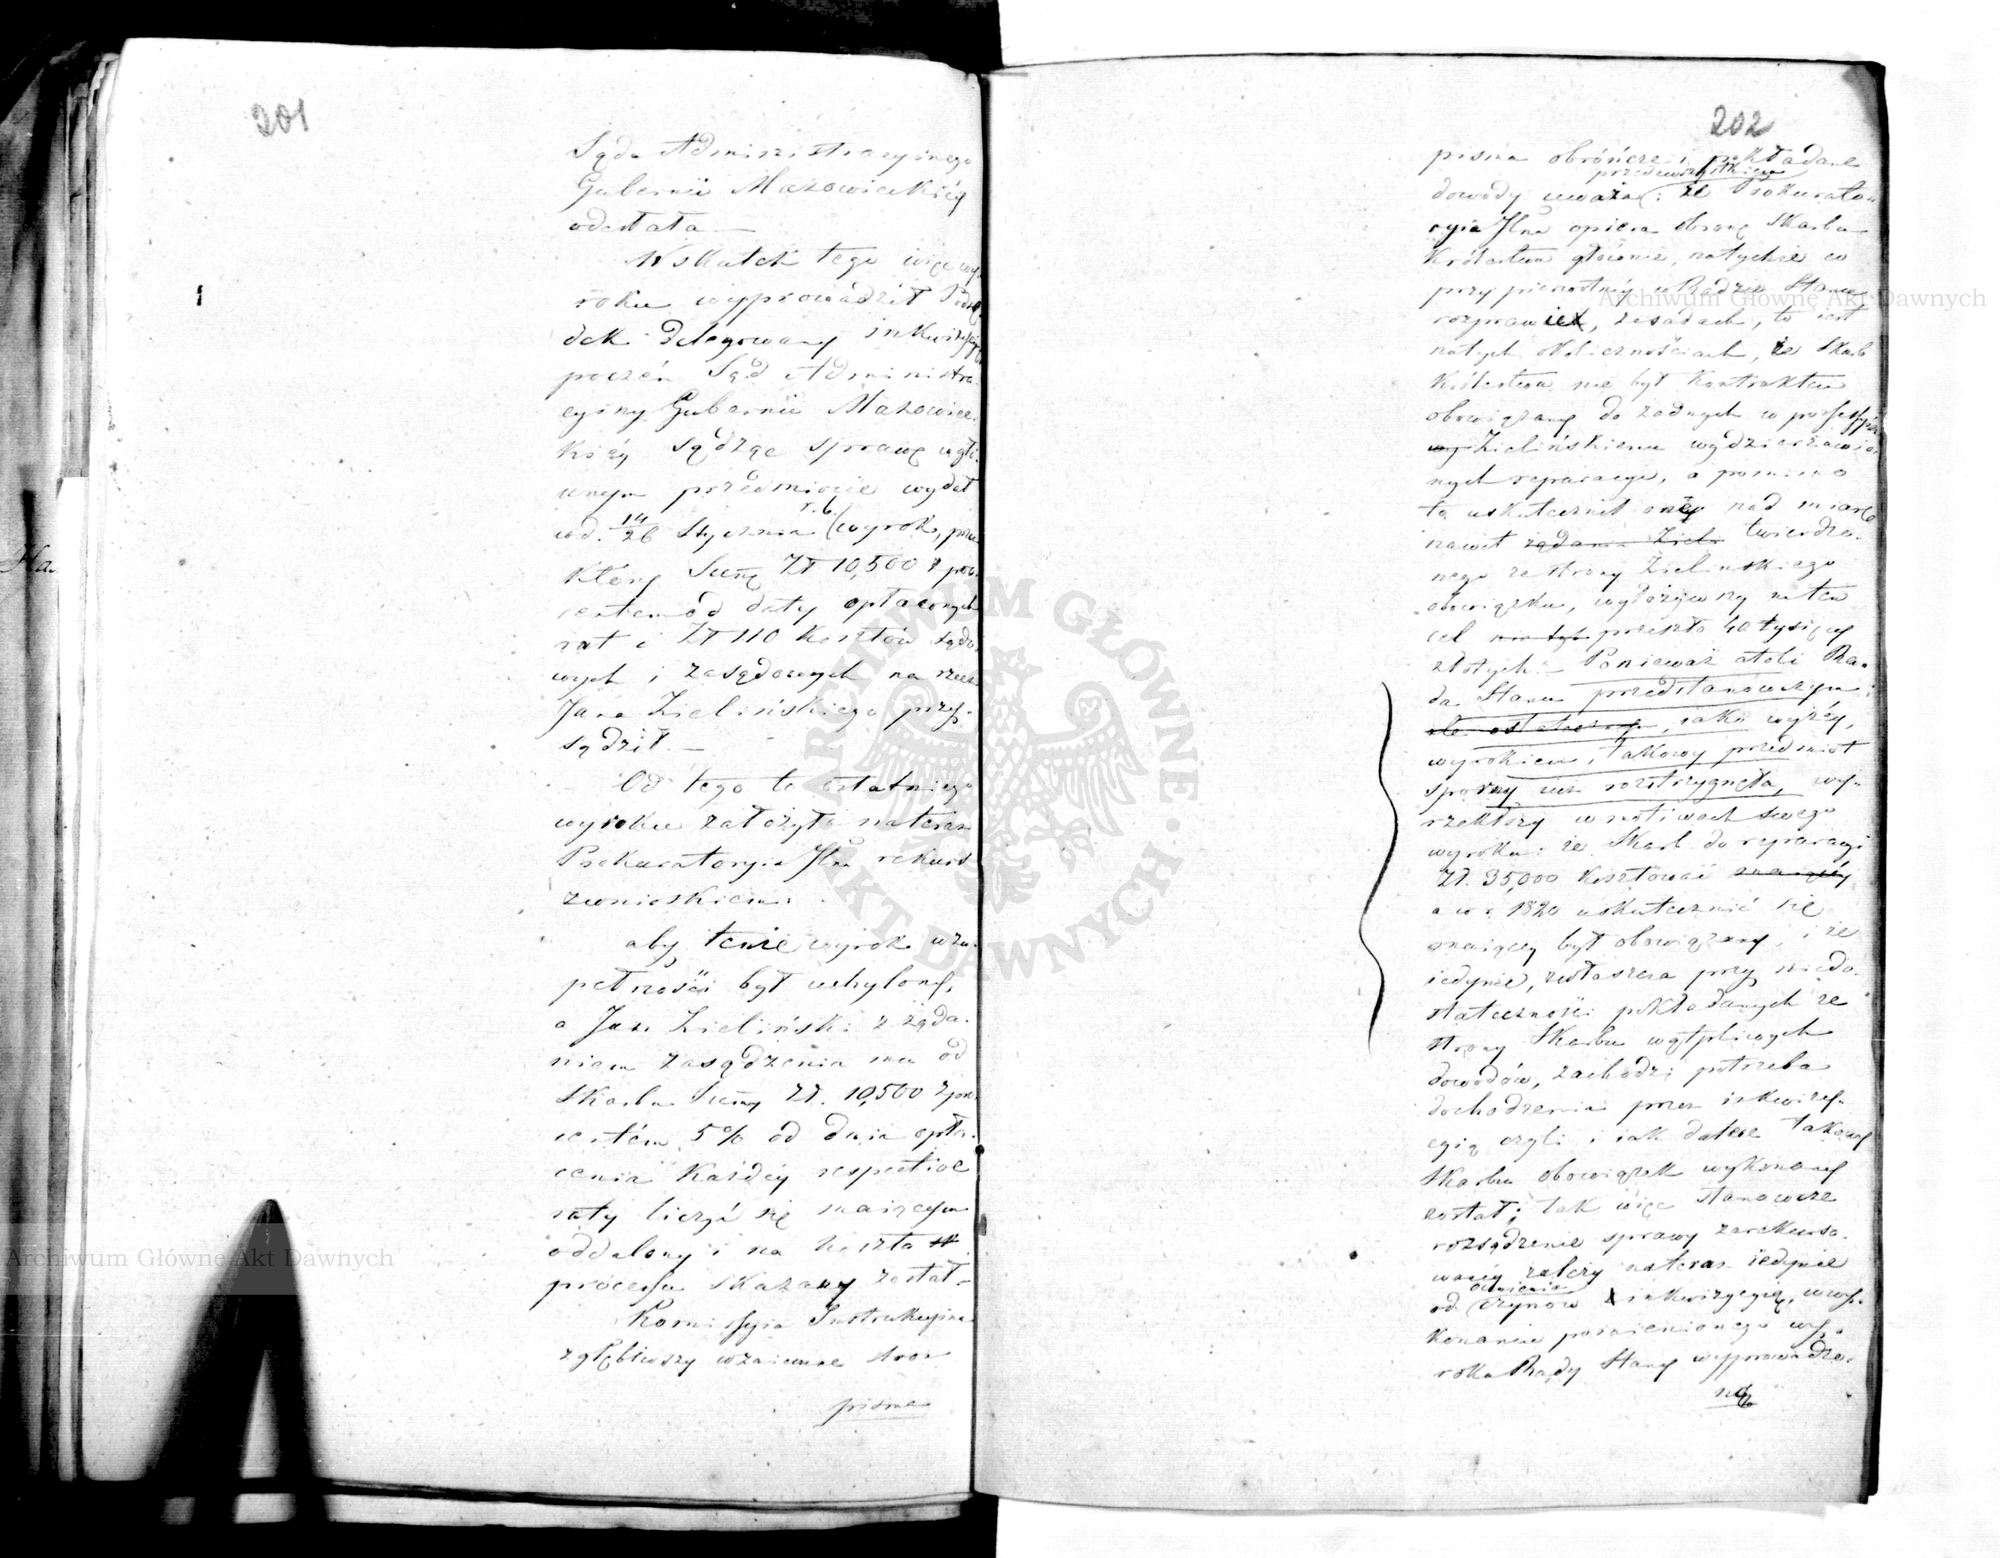 201
Sądu Administracyinego
Gubernii Mazowieckiéy
odesłała —
W skutek tego więc wy-
roku wyprowadził Podsę-
dek delegowany inkwizycyą
poczém Sąd Administra-
cyiny Gubernii Mazowiec-
kiéy sądząc sprawę w głó-
wnym przedmiocie wydał
w d. 14/26 Stycznia r. b. wyrok, przez
który Summę Zł 10,500 z pro-
centem od daty opłaconych
rat i Zł 110 kosztów sądo-
wych i zasądowych na rzecz
Jana Zielińskiego przy-
sądził. —
Od tego to ostatniego
wyroku założyła nateraz
Prokuratorya Jlna rekurs
z wnioskiem:
aby tenże wyrok w zu-
pełności był uchylony,
a Jan Zieliński z żąda-
niem zasądzenia mu od
Skarbu Summy Zł. 10,500 z pro-
centem 5% od dnia opła-
cenia każdéy respective
raty liczyć się maiącym
oddalony i na koszta
processu skazany został —
Kommissyia Instrukcyina
zgłębiwszy wzaiemne stron
pisma
202
pisma obrończe i pokładane
przedewszystkiem
dowody uważa: że Prokurato-
ryia Jlna opiera obronę Skarbu
Królestwa głównie, na tychże co
przy pierwotnéy w Radzie Stanu
rozprawie, zasadach, to iest
na tych okolicznościach, że Skarb
Królestwa nie był kontraktem
obowiązany do żadnych w possessyi
Zielińskiemu wydzierżawio-
nych reparacyi, a pomimo
to uskutecznił onéy nad miarę
nawet żądania Ziel. twierdzo-
nego ze strony Zielińskiego
obowiązku, wyłożywszy na ten
cel przeszło 40 tysięcy
złotych. — Ponieważ atoli Ra-
da Stanu przedstanowczym,
ale ostatecznym, iako wyżéy,
wyrokiem, takowy przedmiot
sporny iuż rozstrzygnęła, wy-
rzekłszy w motiwach swego
wyroku: że Skarb do reparacyi
Zł. 35,000 kosztować maiącéy
a w r. 1820 uskutecznić się
maiącéy był obowiązany, i że
iedynie, zwłaszcza przy niedo-
stateczności pokładanych ze
strony Skarbu wątpliwych
dowodów, zachodzi potrzeba
dochodzenia przez inkwizy-
cyią czyli i iak dalece takowy
Skarbu obowiązek wykonany
został; tak więc stanowcze
rozsądzenie sprawy zarekurso-
wanéy zależy nateraz iedynie
ocenienia
od czynów inkwizycyią, w wy-
konaniu pomienionego wy-
roku Rady Stanu wyprowadzo-
ną
Archiwum Główne Akt Dawnych
Archiwum Główne Akt Dawnych
ARCHIWUM GŁÓWNE AKT DAWNYCH